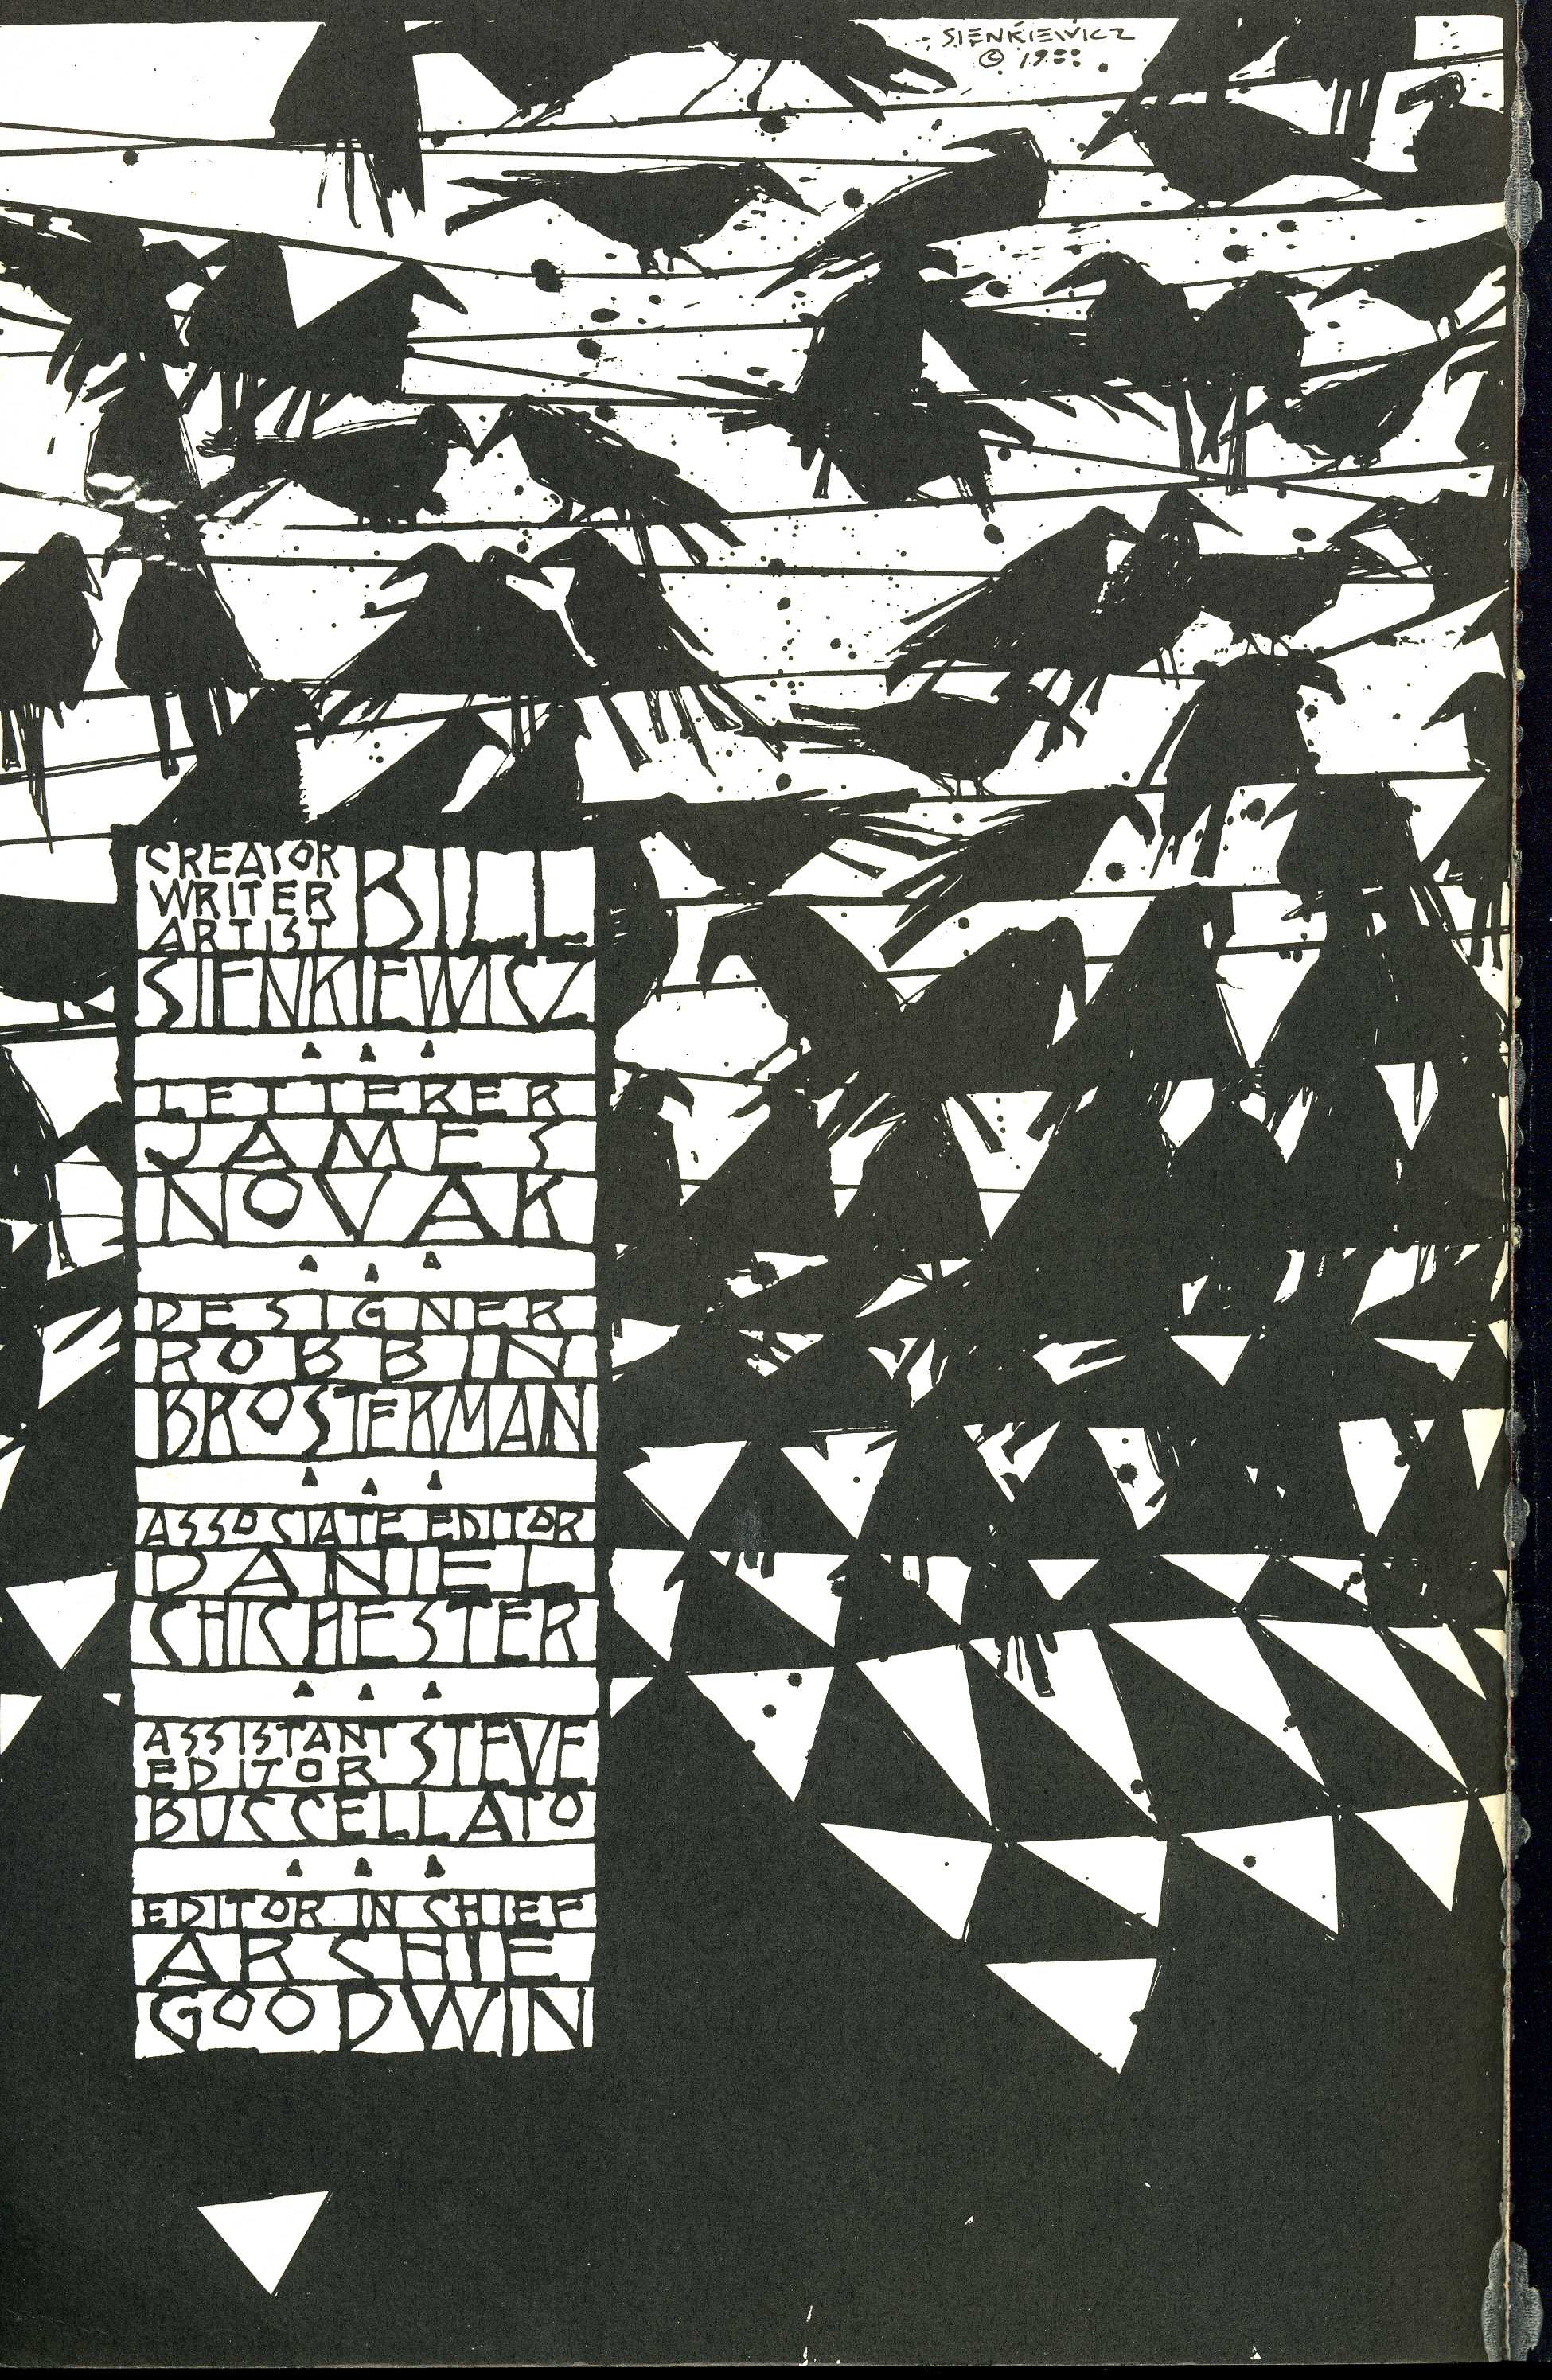 SIENKIEWICZ
© 1988
CREATOR
WRITER
ARTIST
BILL
SIENKIEWICZ
LETTERER
JAMES
NOVAK
DESIGNER
ROBBIN
BROSTERMAN
ASSOCIATE EDITOR
DANIEL
CHICHESTER
ASSISTANT
EDITOR
STEVE
BUCCELLATO
EDITOR IN CHIEF
ARCHIE
GOODWIN